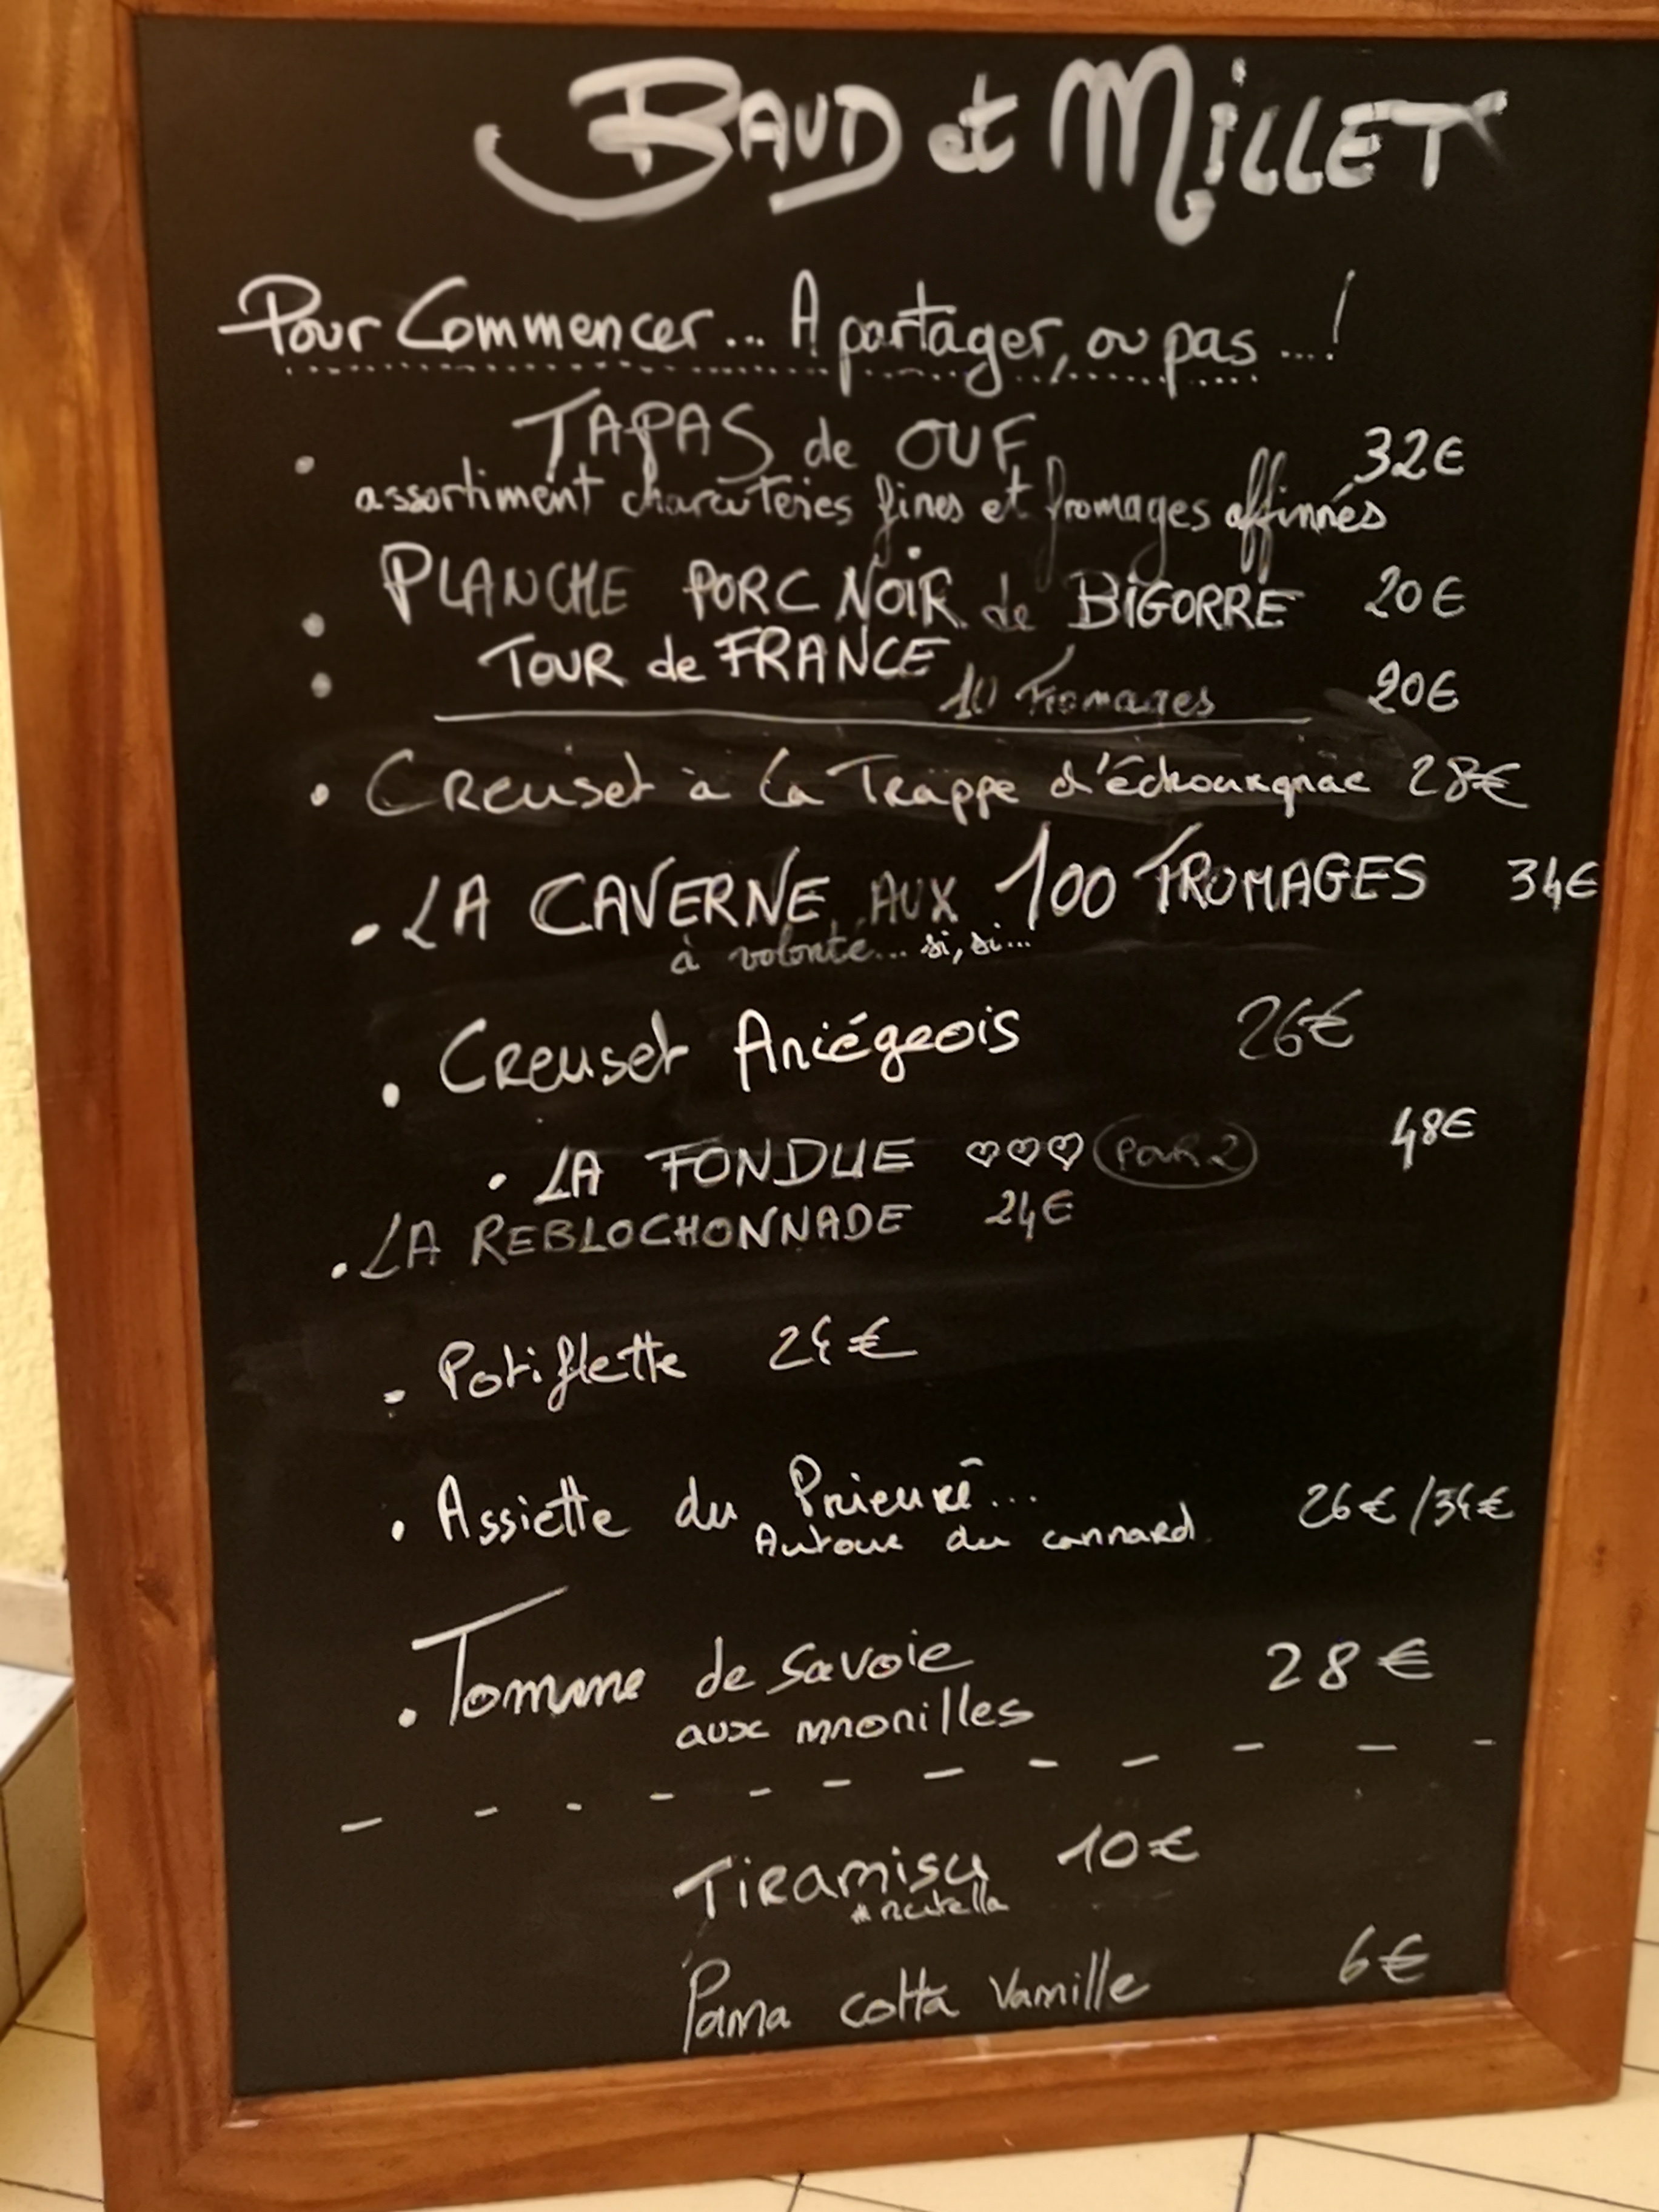 BAUD et MiLLET
Pour Commencer... A partager, ou pas ....!
. TAPAS de OUF 32€
assortiment charcuteries fines et fromages affinnés
. PLANCHE PORC NOiR de BiGORRE 20€
. TOUR de FRANCE 10 Fromages 20€
. Creuset à la Trappe d'échourgnac 28€
. LA CAVERNE AUX 100 FROMAGES 34€
à volonté... si, si...
. Creuset Ariégeois 26€
. LA FONDUE ♡♡♡ (POUR 2) 48€
. LA REBLOCHONNADE 24€
- Potiflette 24€
. Assiette du Prieuré... 26€/34€
Autour du cannard
. Tomme de Savoie 28€
aux morilles
Tiramisu 10€
# nutella
Pana cotta Vanille 6€